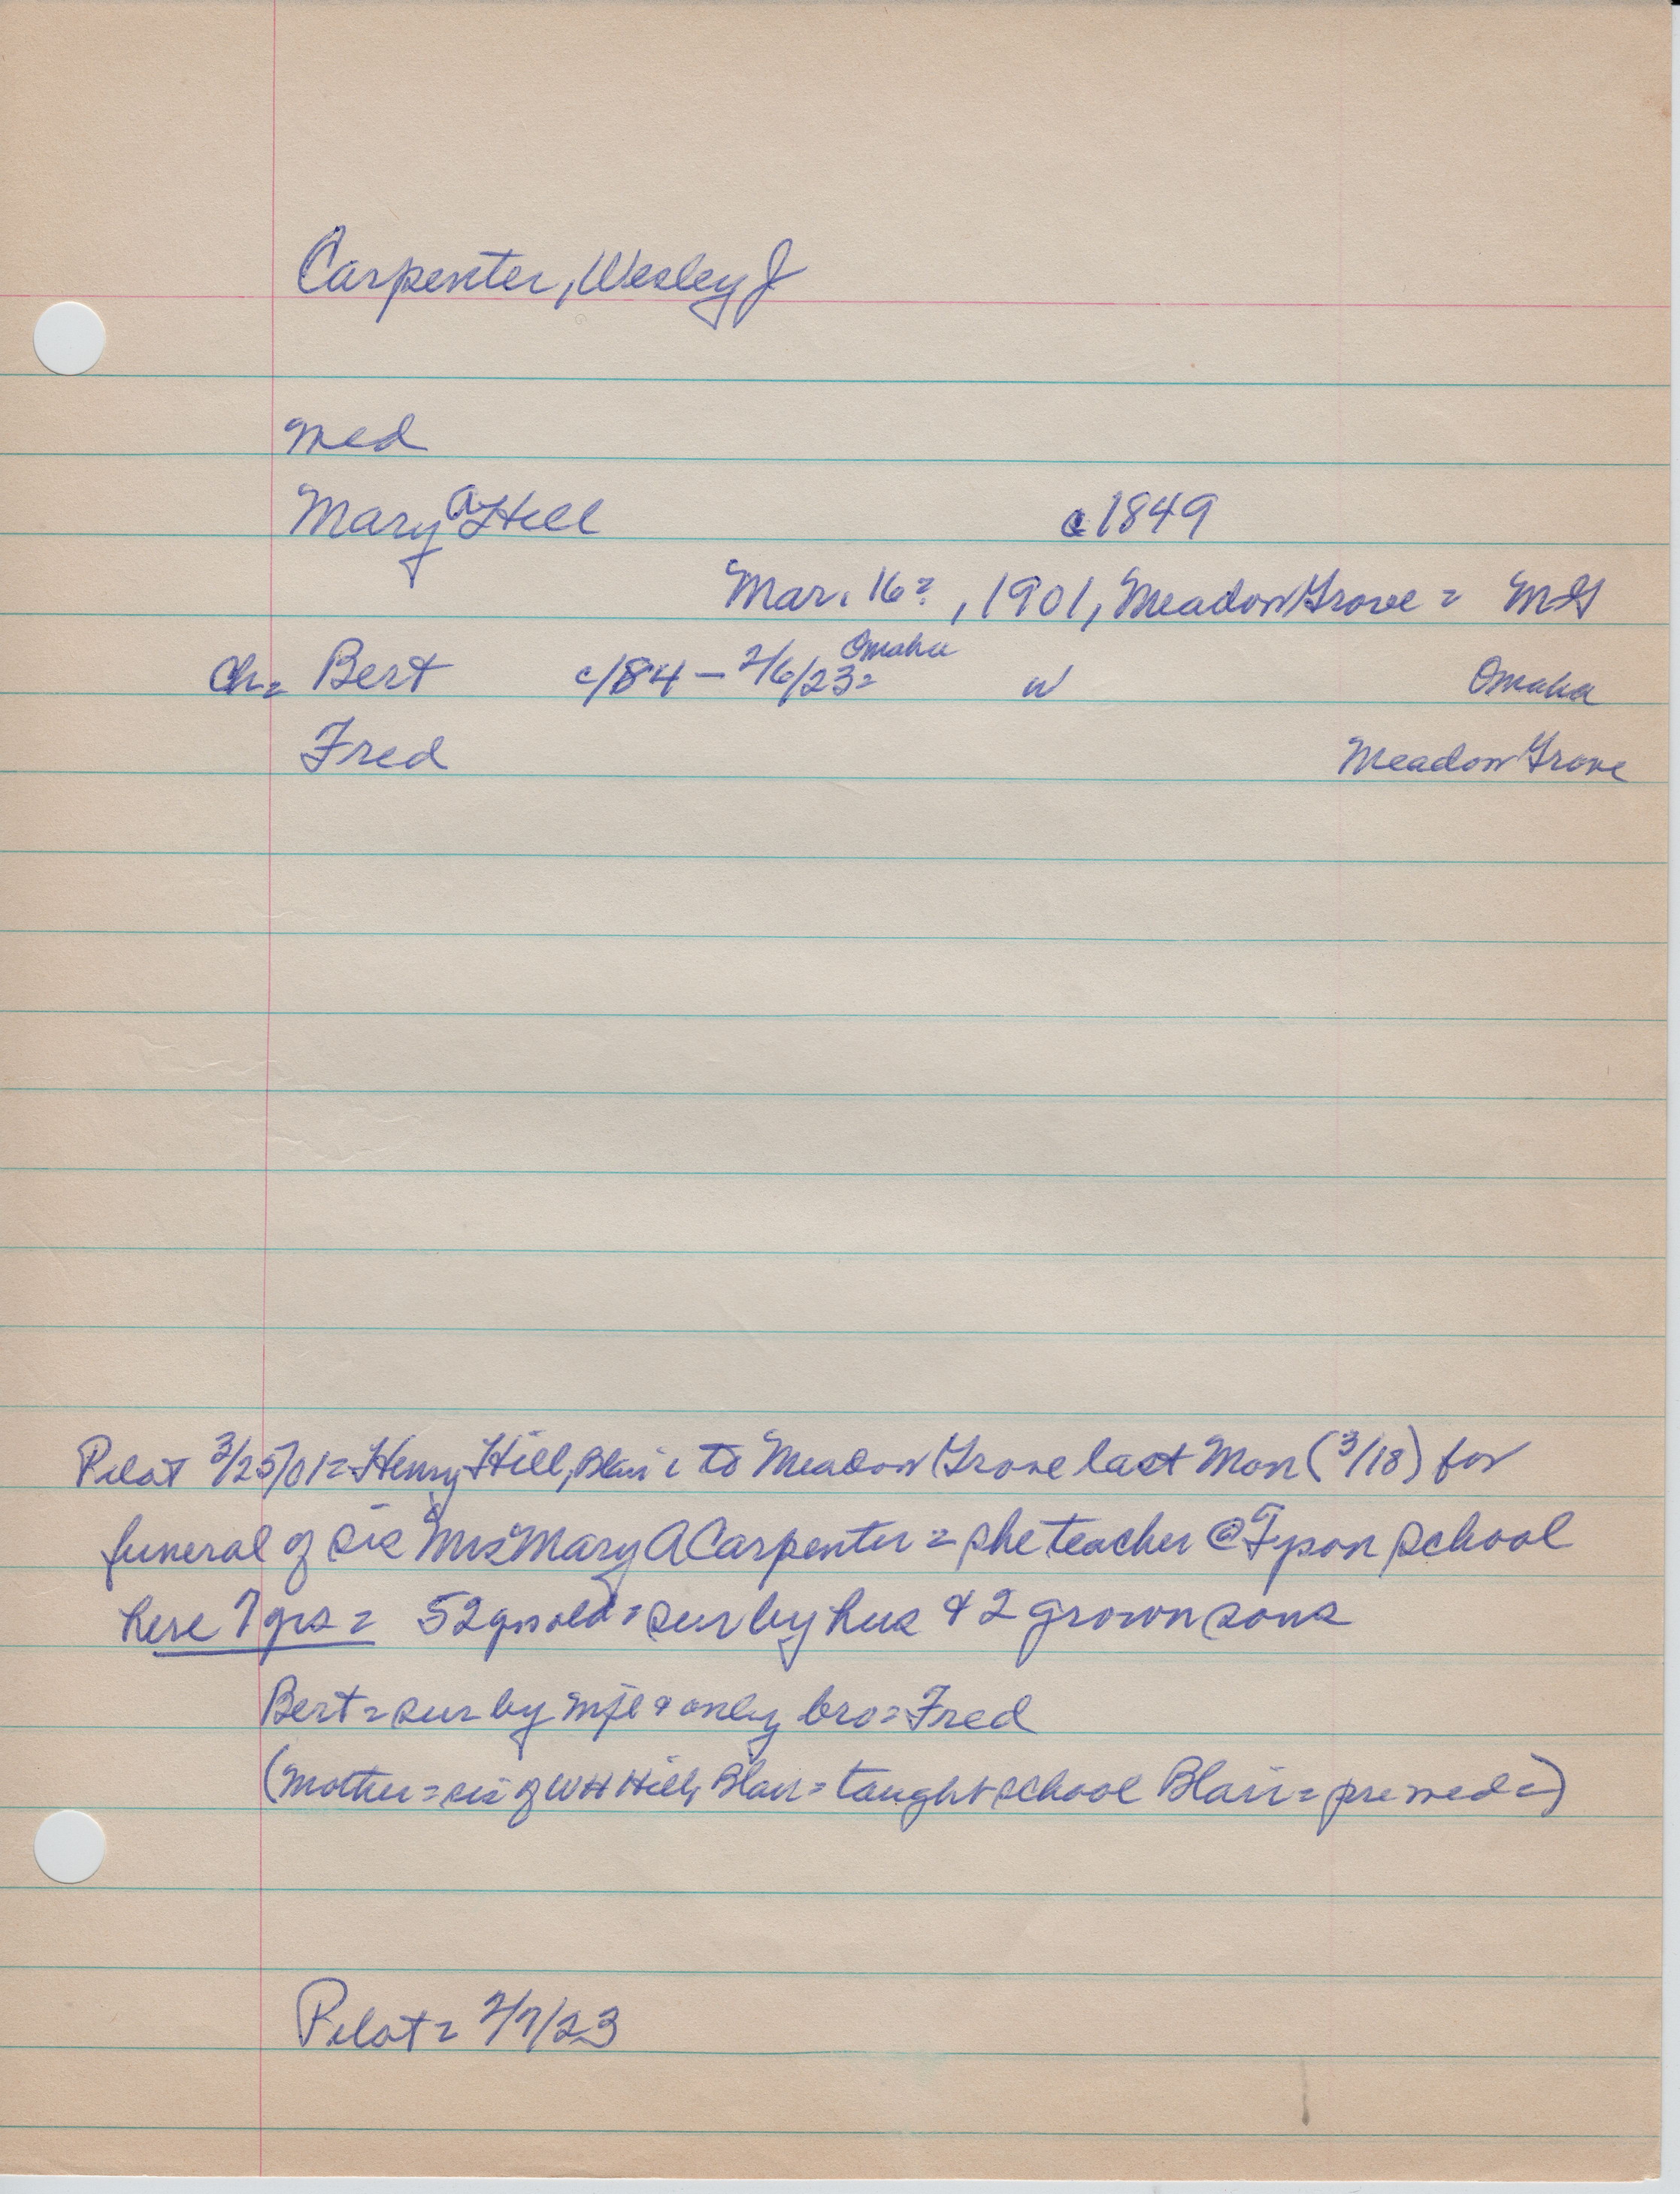 Carpenter, Wesley J
med
Mary A Hill c1849
Mar. 16?, 1901, Meadow Grove = MG
Ch= Bert c/84 – 2/6/23= Omaha w Omaha
Fred Meadow Grove
Pilot 3/25/01= Henry Hill, Blair to Meadow Grove last Mon (3/18) for
funeral of sis Mrs Mary A Carpenter = she teacher @ Tyson school
here 7 yrs = 52 yrs old = sur by hus & 2 grown sons
Bert = sur by & only bro = Fred
(Mother = sis of WH Hill, Blair = taught school Blair = pre med =)
Pilot = 2/7/23